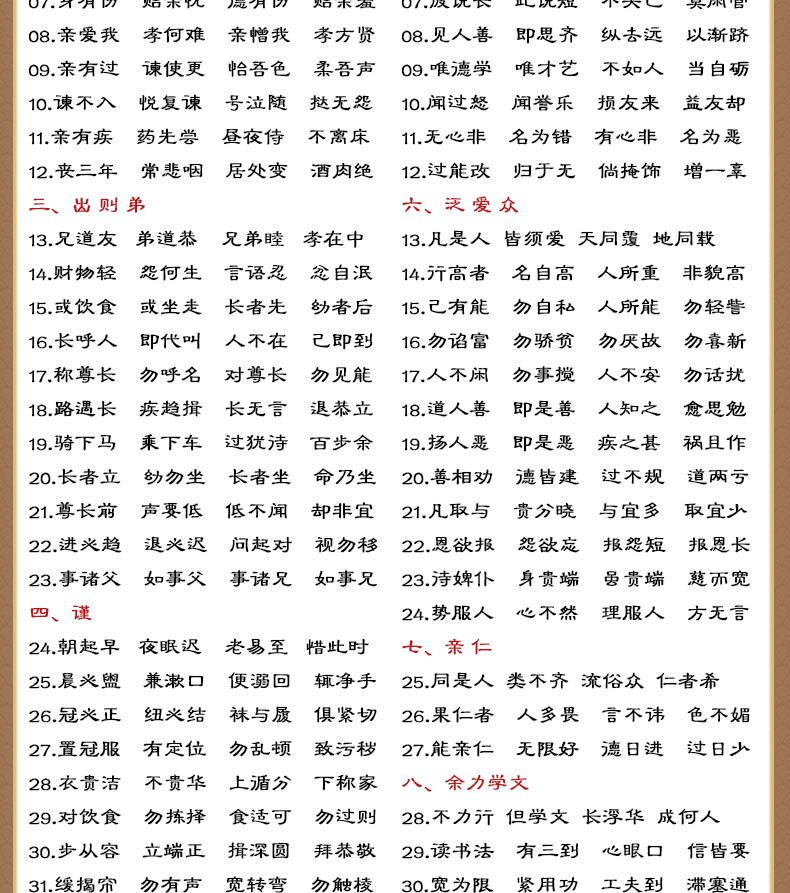 07.身有伤 贻亲忧 德有伤 贻亲羞
08.亲爱我 孝何难 亲憎我 孝方贤
09.亲有过 谏使更 怡吾色 柔吾声
10.谏不入 悦复谏 号泣随 挞无怨
11.亲有疾 药先尝 昼夜侍 不离床
12.丧三年 常悲咽 居处变 酒肉绝
三、出则弟
13.兄道友 弟道恭 兄弟睦 孝在中
14.财物轻 怨何生 言语忍 忿自泯
15.或饮食 或坐走 长者先 幼者后
16.长呼人 即代叫 人不在 己即到
17.称尊长 勿呼名 对尊长 勿见能
18.路遇长 疾趋揖 长无言 退恭立
19.骑下马 乘下车 过犹待 百步余
20.长者立 幼勿坐 长者坐 命乃坐
21.尊长前 声要低 低不闻 却非宜
22.进必趋 退必迟 问起对 视勿移
23.事诸父 如事父 事诸兄 如事兄
四、谨
24.朝起早 夜眠迟 老易至 惜此时
25.晨必盥 兼漱口 便溺回 辄净手
26.冠必正 纽必结 袜与履 俱紧切
27.置冠服 有定位 勿乱顿 致污秽
28.衣贵洁 不贵华 上循分 下称家
29.对饮食 勿拣择 食适可 勿过则
30.步从容 立端正 揖深圆 拜恭敬
31.缓揭帘 勿有声 宽转弯 勿触棱
07.彼说长 此说短 不关己 莫闲管
08.见人善 即思齐 纵去远 以渐跻
09.唯德学 唯才艺 不如人 当自砺
10.闻过怒 闻誉乐 损友来 益友却
11.无心非 名为错 有心非 名为恶
12.过能改 归于无 倘掩饰 增一辜
六、泛爱众
13.凡是人 皆须爱 天同覆 地同载
14.行高者 名自高 人所重 非貌高
15.己有能 勿自私 人所能 勿轻訾
16.勿谄富 勿骄贫 勿厌故 勿喜新
17.人不闲 勿事搅 人不安 勿话扰
18.道人善 即是善 人知之 愈思勉
19.扬人恶 即是恶 疾之甚 祸且作
20.善相劝 德皆建 过不规 道两亏
21.凡取与 贵分晓 与宜多 取宜少
22.恩欲报 怨欲忘 报怨短 报恩长
23.待婢仆 身贵端 虽贵端 慈而宽
24.势服人 心不然 理服人 方无言
七、亲仁
25.同是人 类不齐 流俗众 仁者希
26.果仁者 人多畏 言不讳 色不媚
27.能亲仁 无限好 德日进 过日少
八、余力学文
28.不力行 但学文 长浮华 成何人
29.读书法 有三到 心眼口 信皆要
30.宽为限 紧用功 工夫到 滞塞通